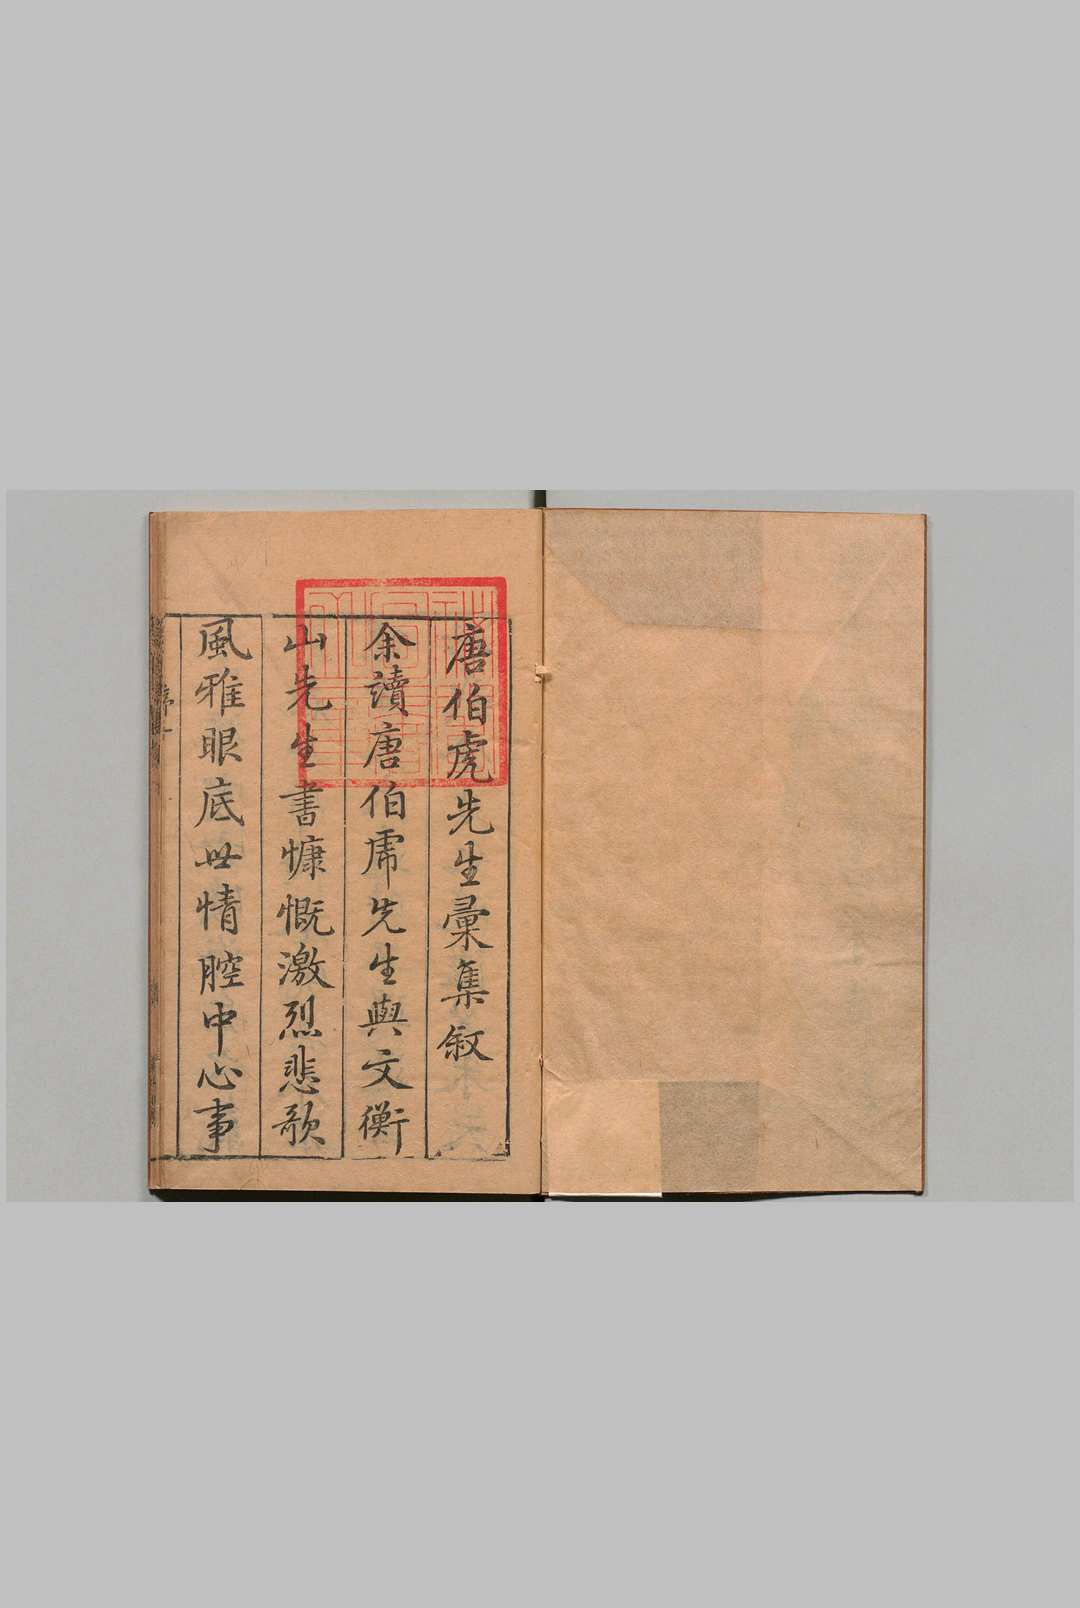 唐伯虎先生彙集敘
余讀唐伯虎先生與文衡
山先生書慷慨激烈悲歌
風雅眼底世情腔中心事
序一